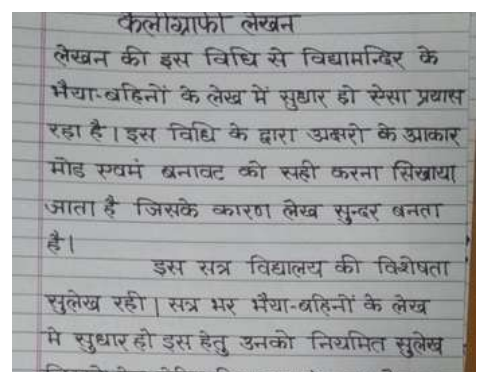 कैलीग्राफी लेखन
लेखन की इस विधि से विद्यामन्दिर के
भैया-बहिनों के लेख में सुधार हो ऐसा प्रयास
रहा है। इस विधि के द्वारा अक्षरो के आकार
मोड एवमं बनावट को सही करना सिखाया
जाता है जिसके कारण लेख सुन्दर बनता
है।
इस सत्र विद्यालय की विशेषता
सुलेख रही। सत्र भर भैया-बहिनों के लेख
मे सुधार हो इस हेतु उनको नियमित सुलेख